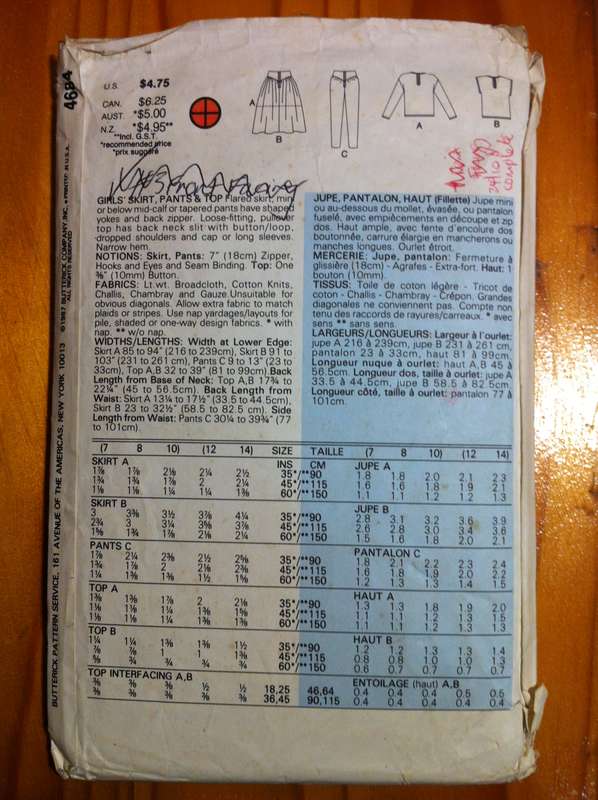 4684
U.S. $4.75
CAN. $6.25
AUST. *$5.00
N.Z. *$4.95**
**Incl. G.S.T.
*recommended price
*prix suggéré
A
B
C
A
B
complete
GIRLS' SKIRT, PANTS & TOP Flared skirt, mini
or below mid-calf or tapered pants have shaped
yokes and back zipper. Loose-fitting, pullover
top has back neck slit with button/loop,
dropped shoulders and cap or long sleeves.
Narrow hem.
NOTIONS: Skirt, Pants: 7" (18cm) Zipper,
Hooks and Eyes and Seam Binding. Top: One
⅜" (10mm) Button.
FABRICS: Lt.wt. Broadcloth, Cotton Knits,
Challis, Chambray and Gauze Unsuitable for
obvious diagonals. Allow extra fabric to match
plaids or stripes. Use nap yardages/layouts for
pile, shaded or one-way design fabrics. * with
nap. ** w/o nap.
WIDTHS/LENGTHS: Width at Lower Edge:
Skirt A 85 to 94" (216 to 239cm), Skirt B 91 to
103" (231 to 261 cm), Pants C 9 to 13" (23 to
33cm), Top A,B 32 to 39" (81 to 99cm) Back
Length from Base of Neck: Top A,B 17¾ to
22¼" (45 to 56.5cm). Back Length from
Waist: Skirt A 13¼ to 17½" (33.5 to 44.5cm),
Skirt B 23 to 32½" (58.5 to 82.5 cm). Side
Length from Waist: Pants C 30¼ to 39¾" (77
to 101cm).
JUPE, PANTALON, HAUT (Fillette) Jupe mini
ou au-dessous du mollet, évasée, ou pantalon
fuselé, avec empiècements en découpe et zip
dos. Haut ample, avec fente d'encolure dos
boutonnée, carrure élargie en mancherons ou
manches longues. Ourlet étroit.
MERCERIE: Jupe, pantalon: Fermeture à
glissière (18cm) - Agrafes - Extra-fort. Haut: 1
bouton (10mm).
TISSUS: Toile de coton légère - Tricot de
coton - Challis - Chambray - Crépon. Grandes
diagonales ne conviennent pas. Compte non
tenu des raccords de rayures/carreaux. * avec
sens ** sans sens.
LARGEURS/LONGUEURS: Largeur à l'ourlet:
jupe A 216 à 239cm, jupe B 231 à 261 cm,
pantalon 23 à 33cm, haut 81 à 99cm.
Longueur nuque à ourlet: haut A,B 45 à
56.5cm. Longueur dos, taille à ourlet: jupe A
33.5 à 44.5cm, jupe B 58.5 à 82.5cm.
Longueur côté, taille à ourlet: pantalon 77 à
101cm.
(7 8 10) (12 14) SIZE TAILLE (7 8 10) (12 14)
SKIRT A INS CM JUPE A
1⅞ 1⅞ 2⅛ 2¼ 2½ 35*/**90 1.8 1.8 2.0 2.1 2.3
1¾ 1¾ 1⅞ 2 2¼ 45*/**115 1.6 1.6 1.8 1.9 2.1
1⅛ 1⅛ 1¼ 1¼ 1⅜ 60*/**150 1.1 1.1 1.2 1.2 1.3
SKIRT B JUPE B
3 3⅜ 3½ 3⅞ 4¼ 35*/**90 2.8 3.1 3.2 3.6 3.9
2¾ 3 3¼ 3⅝ 3⅞ 45*/**115 2.6 2.8 3.0 3.4 3.6
1⅝ 1¾ 1⅞ 2⅛ 2¼ 60*/**150 1.5 1.6 1.8 2.0 2.1
PANTS C PANTALON C
1⅞ 2¼ 2⅜ 2½ 2⅝ 35*/**90 1.8 2.1 2.2 2.3 2.4
1¾ 1⅞ 2 2⅛ 2⅜ 45*/**115 1.6 1.8 1.9 2.0 2.2
1¼ 1⅜ 1⅜ 1½ 1⅝ 60*/**150 1.2 1.3 1.3 1.4 1.5
TOP A HAUT A
1⅜ 1⅜ 1⅞ 2 2⅛ 35*/**90 1.3 1.3 1.8 1.9 2.0
1⅛ 1⅛ 1¼ 1⅜ 1⅝ 45*/**115 1.1 1.1 1.2 1.3 1.5
1⅛ 1⅛ 1¼ 1⅜ 1⅜ 60*/**150 1.1 1.1 1.2 1.3 1.3
TOP B HAUT B
1¼ 1¼ 1⅜ 1⅜ 1½ 35*/**90 1.2 1.2 1.3 1.3 1.4
⅞ ⅞ 1 1 1⅜ 45*/**115 0.8 0.8 1.0 1.0 1.3
⅝ ¾ ¾ ¾ ¾ 60*/**150 0.6 0.7 0.7 0.7 0.7
TOP INTERFACING A,B ENTOILAGE (haut) A,B
⅜ ⅜ ⅜ ½ ½ 18,25 46,64 0.4 0.4 0.4 0.5 0.5
⅜ ⅜ ⅜ ⅜ ⅜ 36,45 90,115 0.4 0.4 0.4 0.4 0.4
BUTTERICK PATTERN SERVICE, 161 AVENUE OF THE AMERICAS, NEW YORK 10013
©1987 BUTTERICK COMPANY, INC. • PRINTED IN U.S.A.
ALL RIGHTS RESERVED